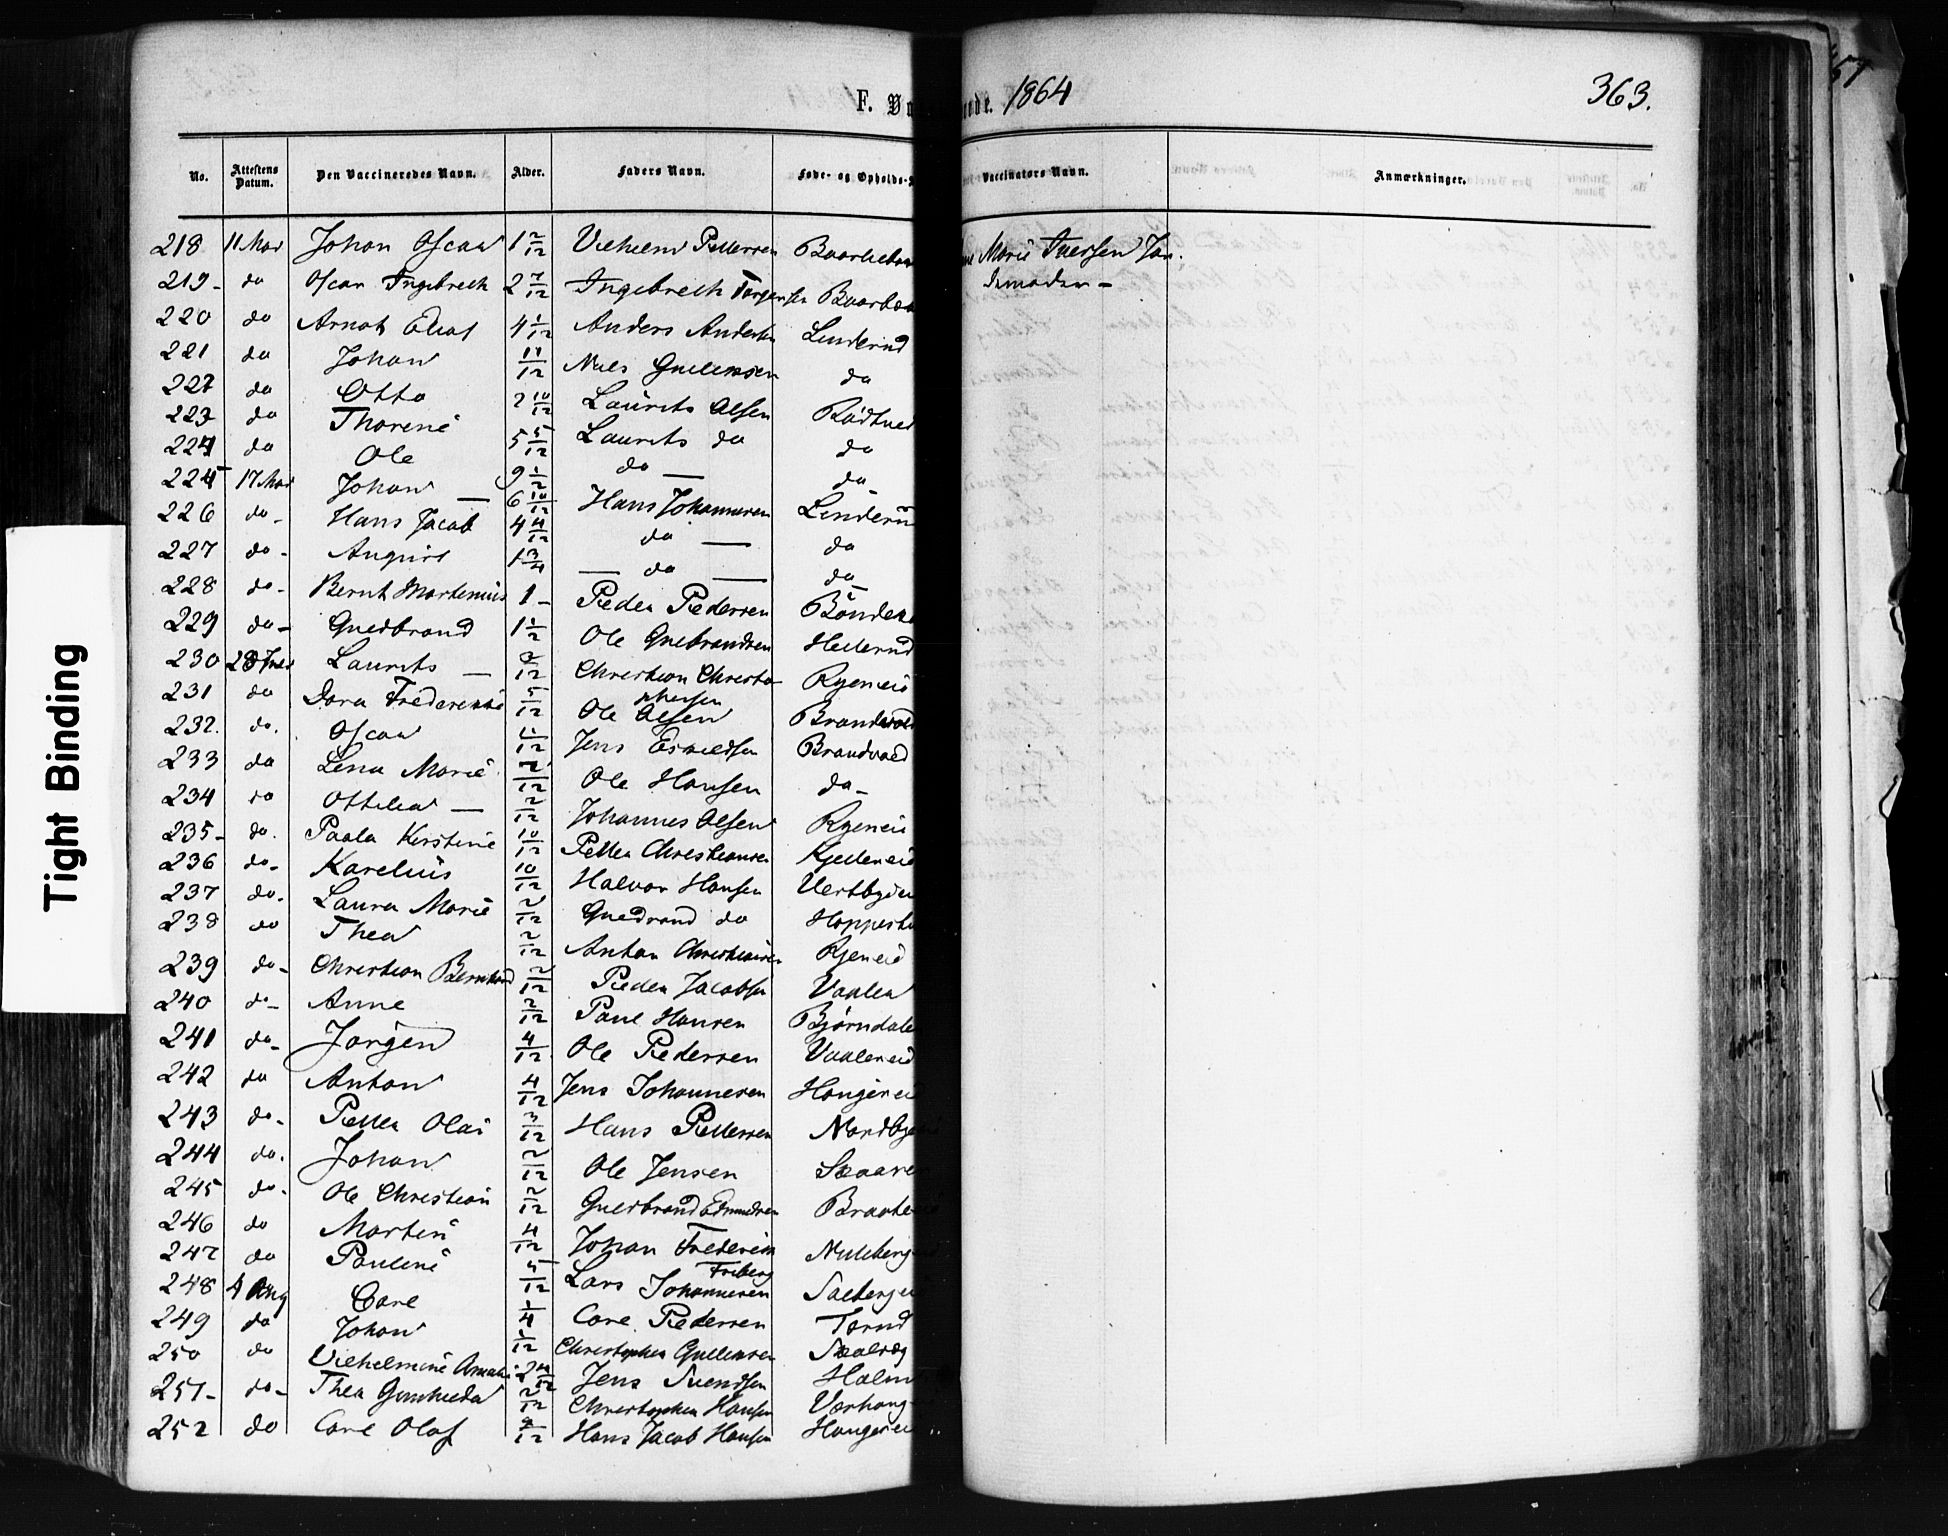 F. Va
nede. 1864
363.
57
Tight Binding
No. Attestens Datum. Den Vaccineredes Navn. Alder. Faders Navn. Føde- og Opholds- Vaccinators Navn. Anmærkninger.
218 11 Mai Johan Oscar 1 2/12 Vilhelm Pettersen Marie Iversen Jor-
219 - do Oscar Ingebreth 2 7/12 Ingebreth Torgersen demoder -
220 do Arnot Eliaf 4 1/12 Anders Andersen Linderud
221 do Johan 11/12 Niels Gulliksen do
222 do Otto 2 10/12 Laurits Olsen Rødtved
223 do Thorine 5 5/12 Laurits do do
224 do Ole 9 1/2 do — do
225 17 Mai Johan — 6 10/12 Hans Johannesen Linderud
226 do - Hans Jacob 4 4/12 do — do
227 do - August 1 3/4 — do — do
228 do - Bernt Martinius 1 - Peder Pedersen
229 do - Gulbrand 1 1/2 Ole Gulbrandsen Hellerud
230 28 Laurits — 2/12 Christian Christophersen Ryeneie
231 do Dora Frederikke 5/12 Ole Olsen Brandvold
232. do. Oscar 11/12 Jens Eskildsen Brandvold
233 do Lina Marie 2/12 Ole Hansen do -
234 do Ottilia — 2/12 Johannes Olsen Ryeneie
235 - do. Paula Kirstine 10/12 Petter Christiansen Kjelleneie
236 do - Karelius 10/12 Halvor Hansen Vestbyeie
237 do. Laura Marie 2/12 Gulbrand do
238 do Thea 2/12 Anton Christiansen Ryeneie
239 do - Christian Bernhard 2/12 Peder Jacobsen Vaalen
240 do - Anne 2/12 Paul Hansen Bjørndale
241 do - Jørgen 4/12 Ole Pedersen Vaaleneie
242 do Anton 4/12 Jens Johannesen Haugereie
243 do - Petter Olai 3/12 Hans Pettersen Nordbye
244 do. Johan 2/12 Ole Jensen Skaarer
245 do - Ole Christian 2/12 Gulbrand Edmundsen Braate
246 do Martin 4/12 Johan Frederik Friberg
247 do Pauline 5/12 Lars Johannesen
248 4 Aug Carl 1/4 Carl Pedersen
249 do Johan 1/12 Christopher Gulliksen
250 do Vilhelmine Amalie 2 4/12 Jens Svendsen Holm
251 - do - Thea Gunhilda 2/12 Christopher Hansen
252 do Carl Olaf 2/12 Hans Jacob Hansen Haugereie